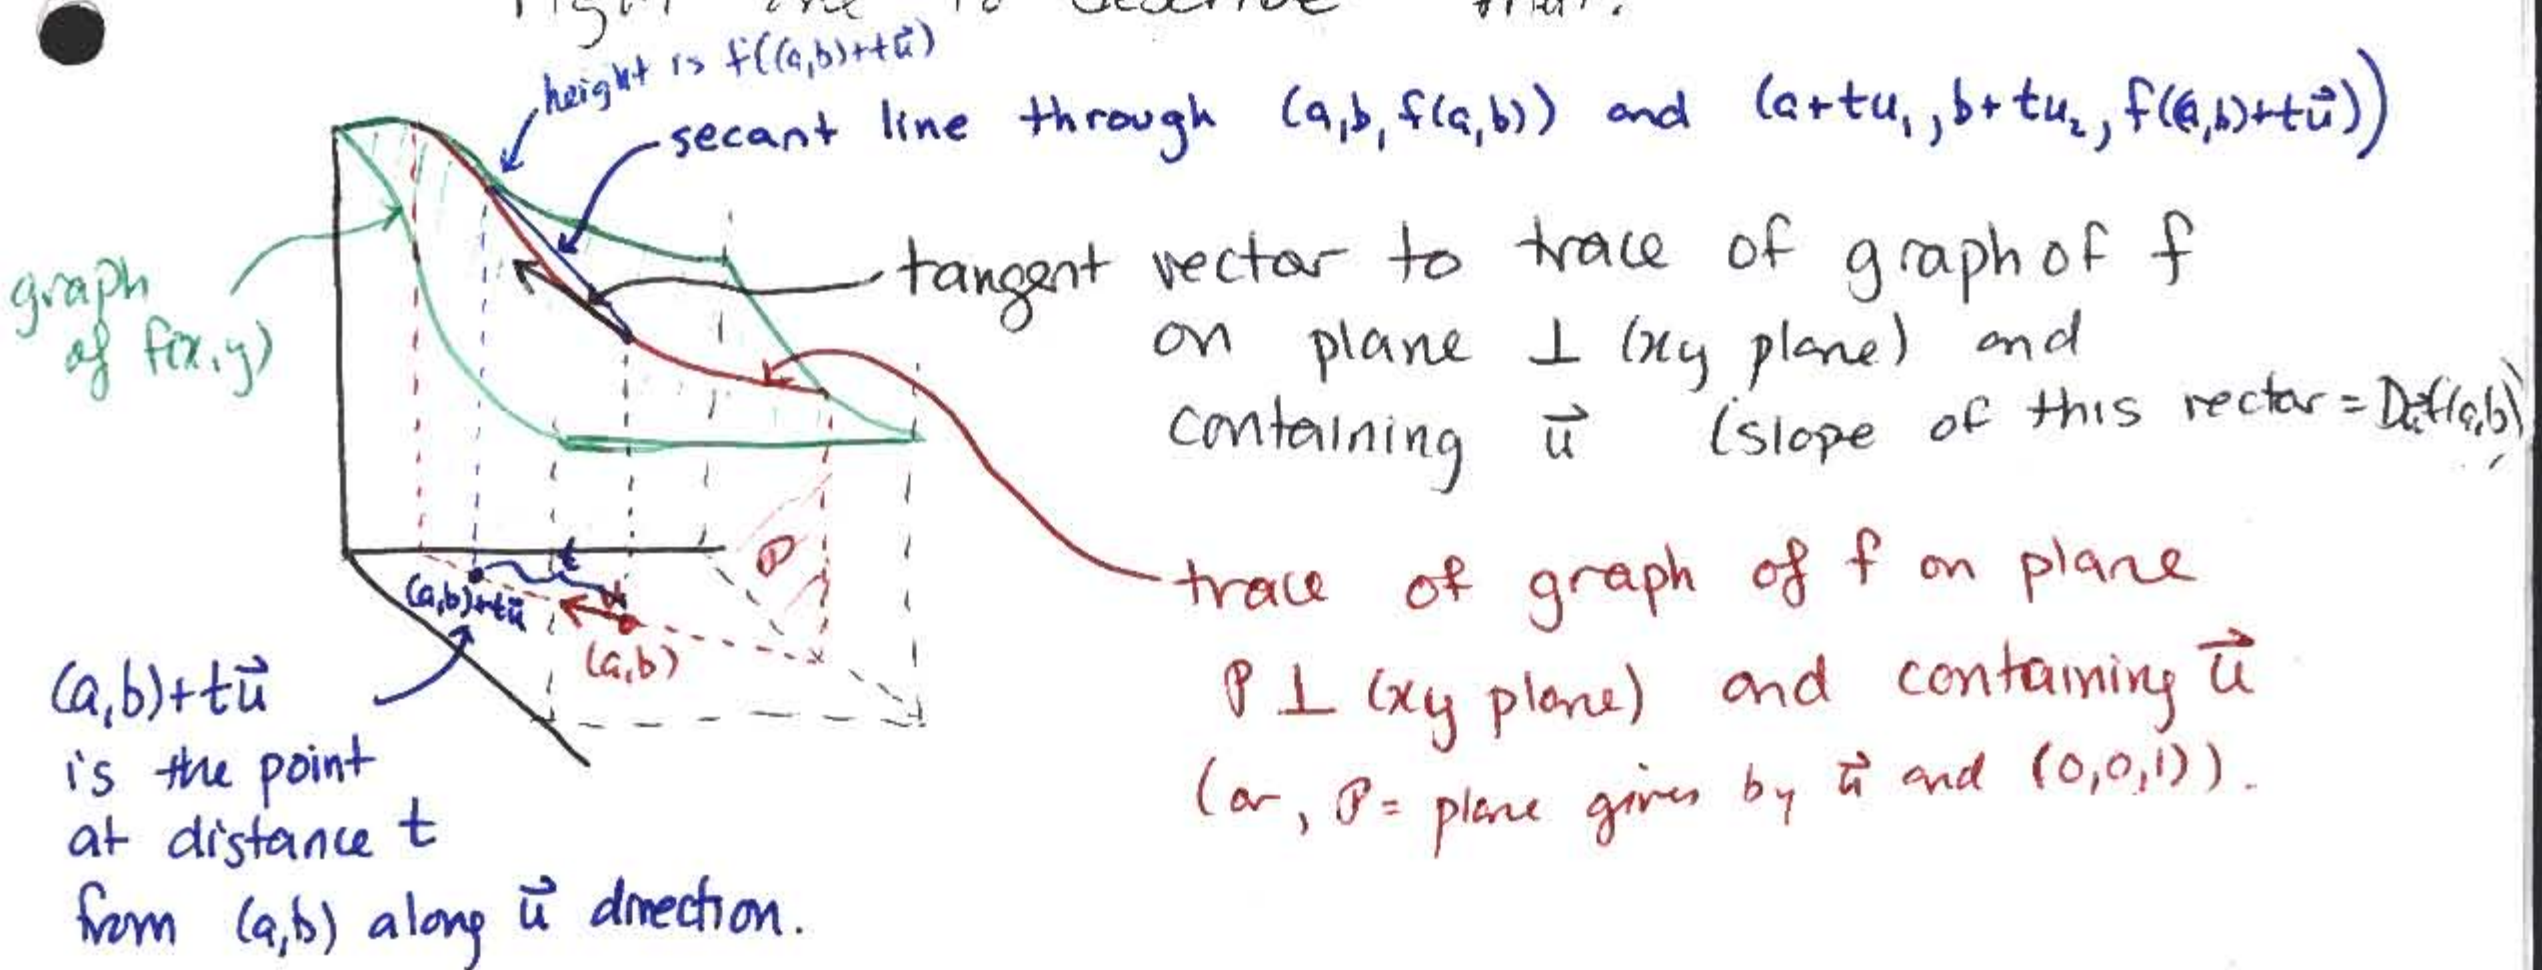 height is f((a,b)+tu⃗)
secant line through (a,b, f(a,b)) and (a+tu₁, b+tu₂, f((a,b)+tu⃗))
graph
of f(x,y)
tangent vector to trace of graph of f
on plane ⊥ (xy plane) and
containing u⃗ (slope of this vector = D_u⃗f(a,b))
t
P
(a,b)+tu⃗
u⃗
(a,b)
trace of graph of f on plane
P ⊥ (xy plane) and containing u⃗
(or, P = plane given by u⃗ and (0,0,1)).
(a,b)+tu⃗
is the point
at distance t
from (a,b) along u⃗ direction.